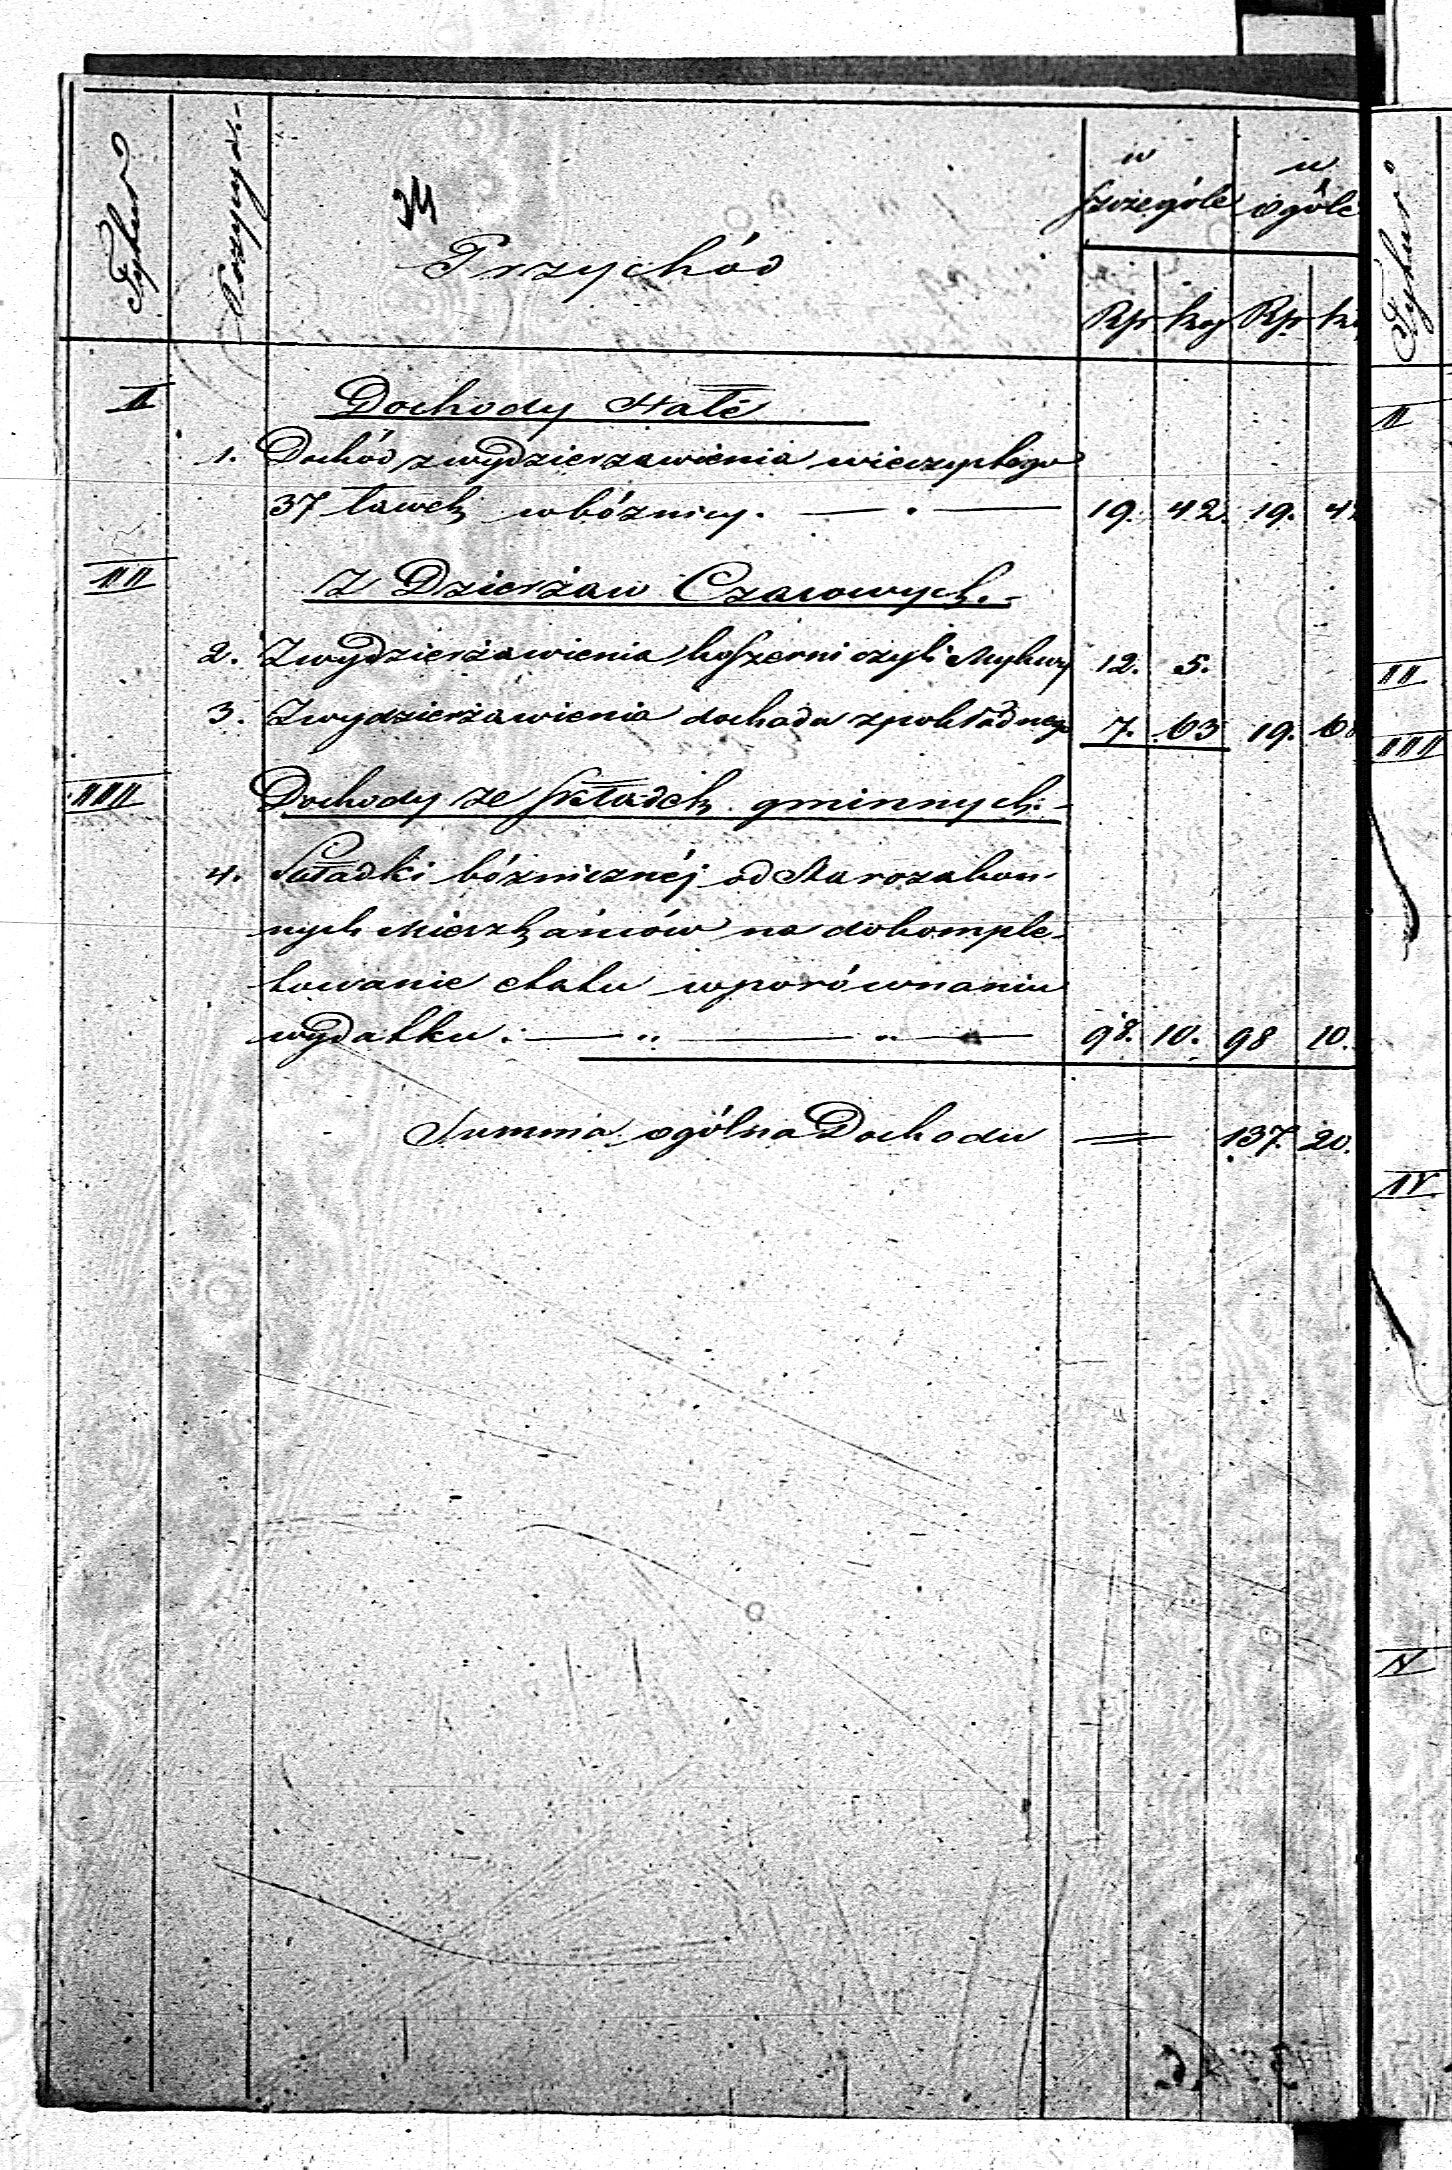 Tytuł
Pozycya
34
Przychód
w szczególe
w ogóle
Rp kop Rp k
I
Dochody Stałe
1. Dochód z wydzierzawienia wieczystego
37 ławek w bóżnicy. 19. 42. 19. 42
II
Z Dzierżaw Czasowych.
2. Z wydzierżawienia koszerni czyli Mykwy 12. 5.
3. Z wydzierżawienia dochodu z pokładnego 7. 63 19. 68
III
Dochody ze składek gminnych.
4. Składki bóżnicznéj od Starozakon-
nych Mieszkańców na dokomple-
towanie etatu w porównaniu
wydatku. 98. 10. 98 10.
Summa ogólna Dochodu = 137. 20.
Tytuł
I
II
III
IV
V